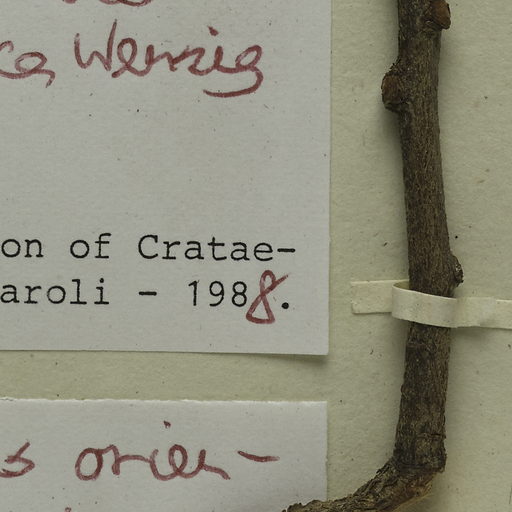 Wenzig
on of Cratae-
aroli - 1988.
s orien-